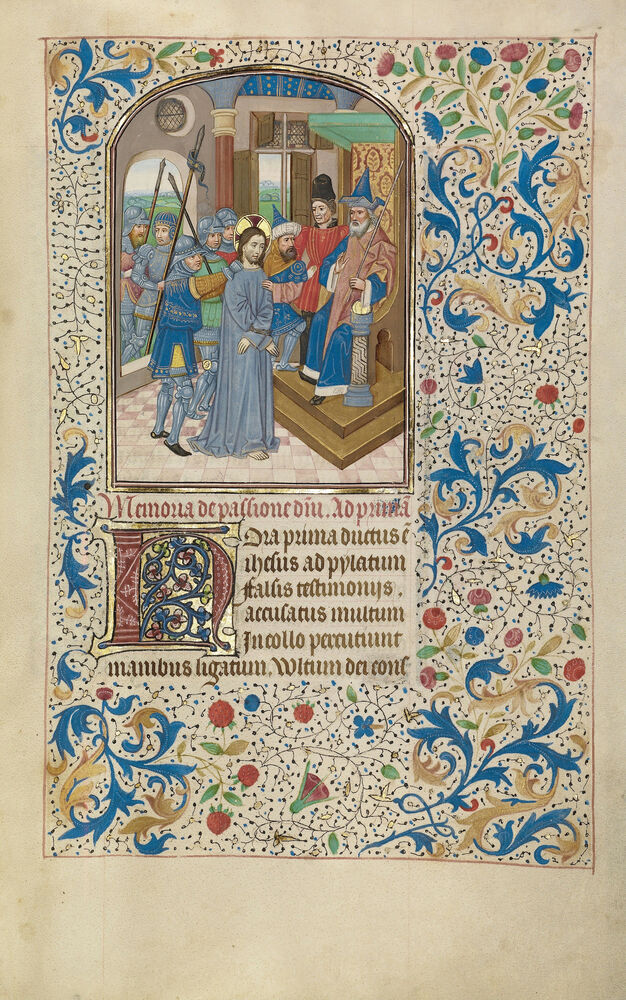 Memoria de passione dni. Ad prima
Hora prima ductus e
ihesus ad pylatum
falsis testimonijs.
accusatus multum
In collo percutiunt
manibus ligatum. Vltum dei cons